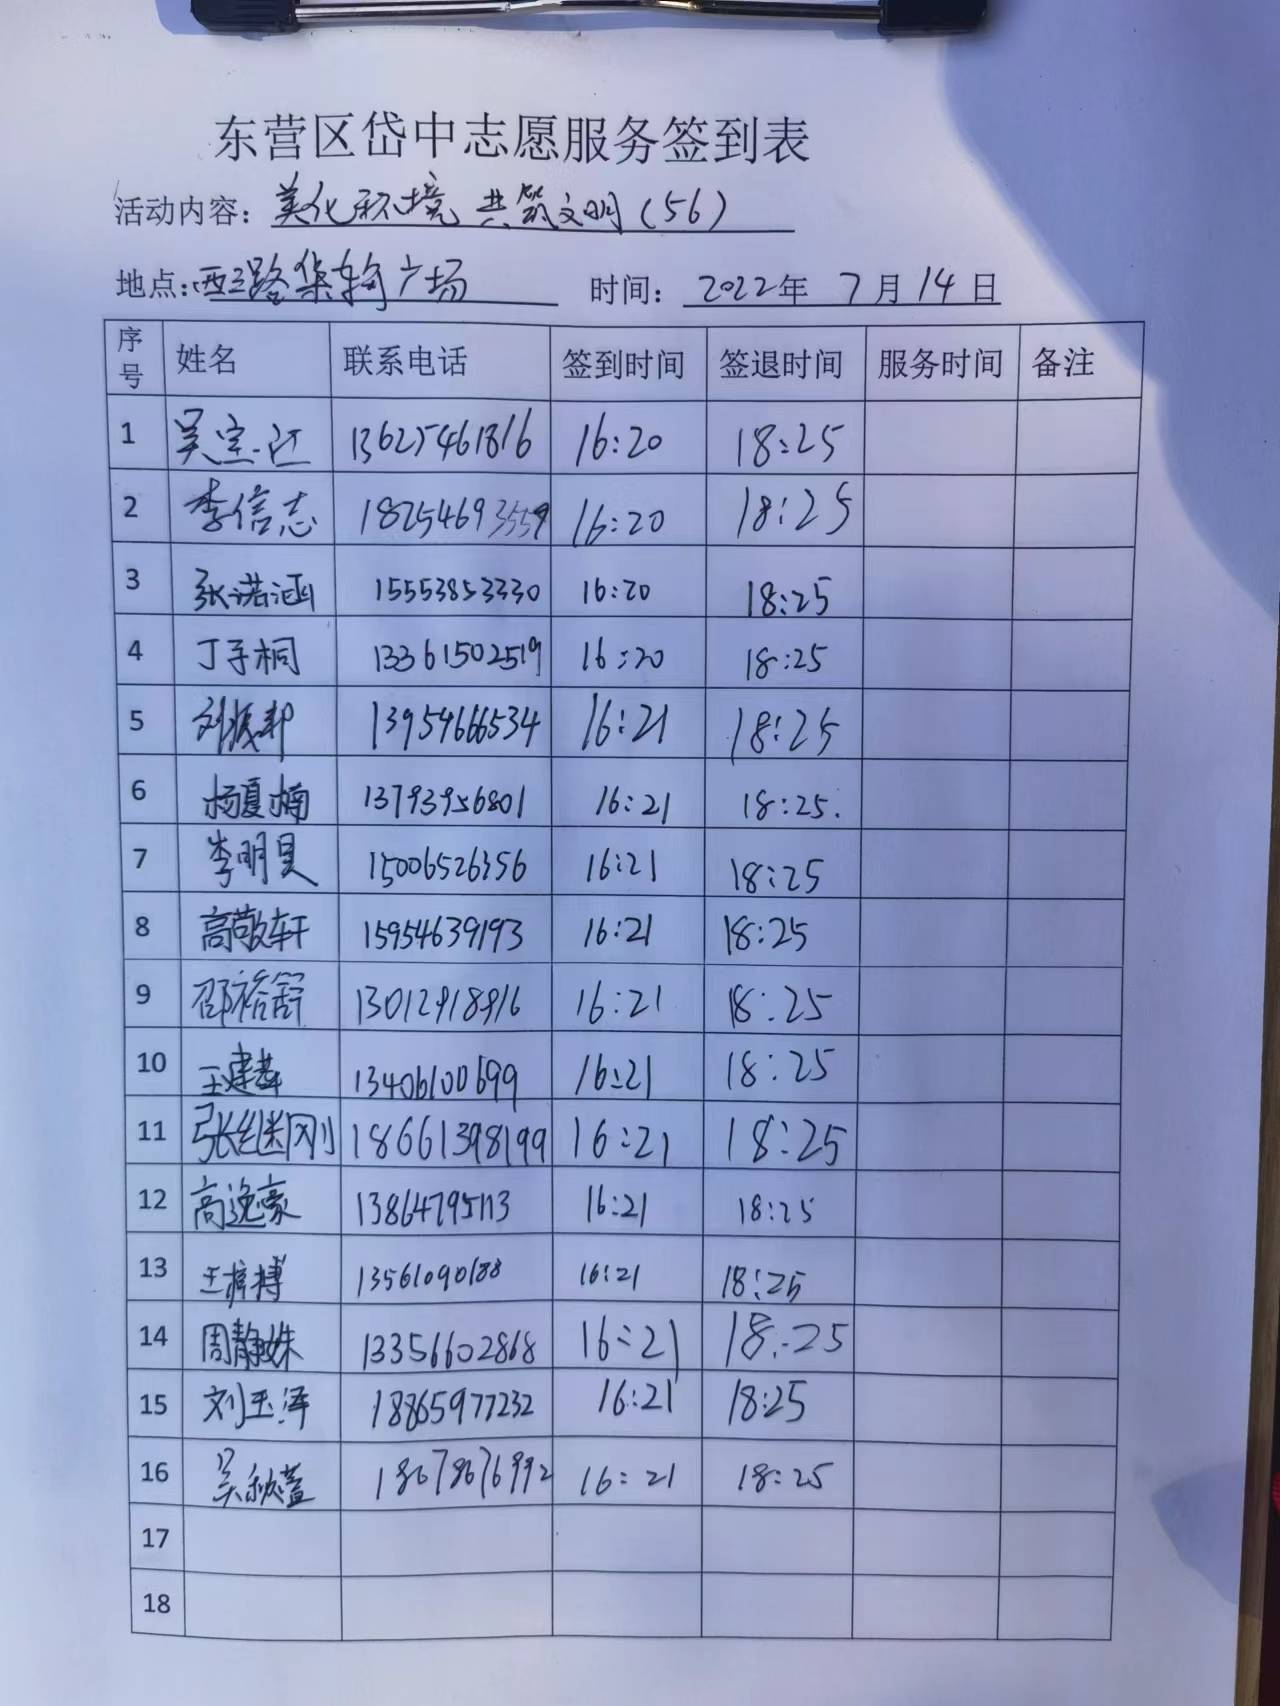 东营区岱中志愿服务签到表
活动内容：美化环境 共筑文明（56）
地点：西三路集输广场 时间：2022年 7月14日
序号 姓名 联系电话 签到时间 签退时间 服务时间 备注
1 吴宝江 13625461816 16:20 18:25
2 李信志 18254693559 16:20 18:25
3 张诺涵 15553853330 16:20 18:25
4 丁子桐 13361502519 16:20 18:25
5 刘振邦 13954666534 16:21 18:25
6 杨夏楠 13793956801 16:21 18:25.
7 李明昊 15006526356 16:21 18:25
8 高敬轩 15954639193 16:21 18:25
9 邵裕舒 13012918916 16:21 18:25
10 王建 13406100699 16:21 18:25
11 张继刚 18661398199 16:21 18:25
12 高逸豪 13864795113 16:21 18:25
13 王梓搏 13561090188 16:21 18:25
14 周静姝 13356602868 16:21 18:25
15 刘玉泽 18865977232 16:21 18:25
16 吴 18678676992 16:21 18:25
17
18